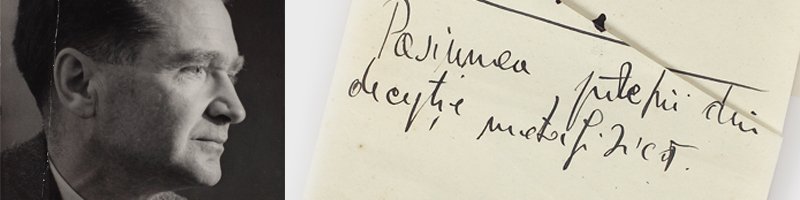 Pasiunea puterii din
decepție metafizică.